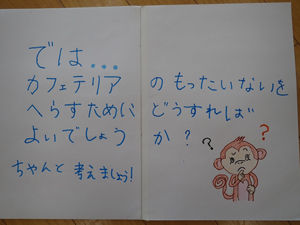 では...
カフェテリアのもったいないを
へらすためにどうすれば
よいでしょうか?
ちゃんと考えましょう!
? ?